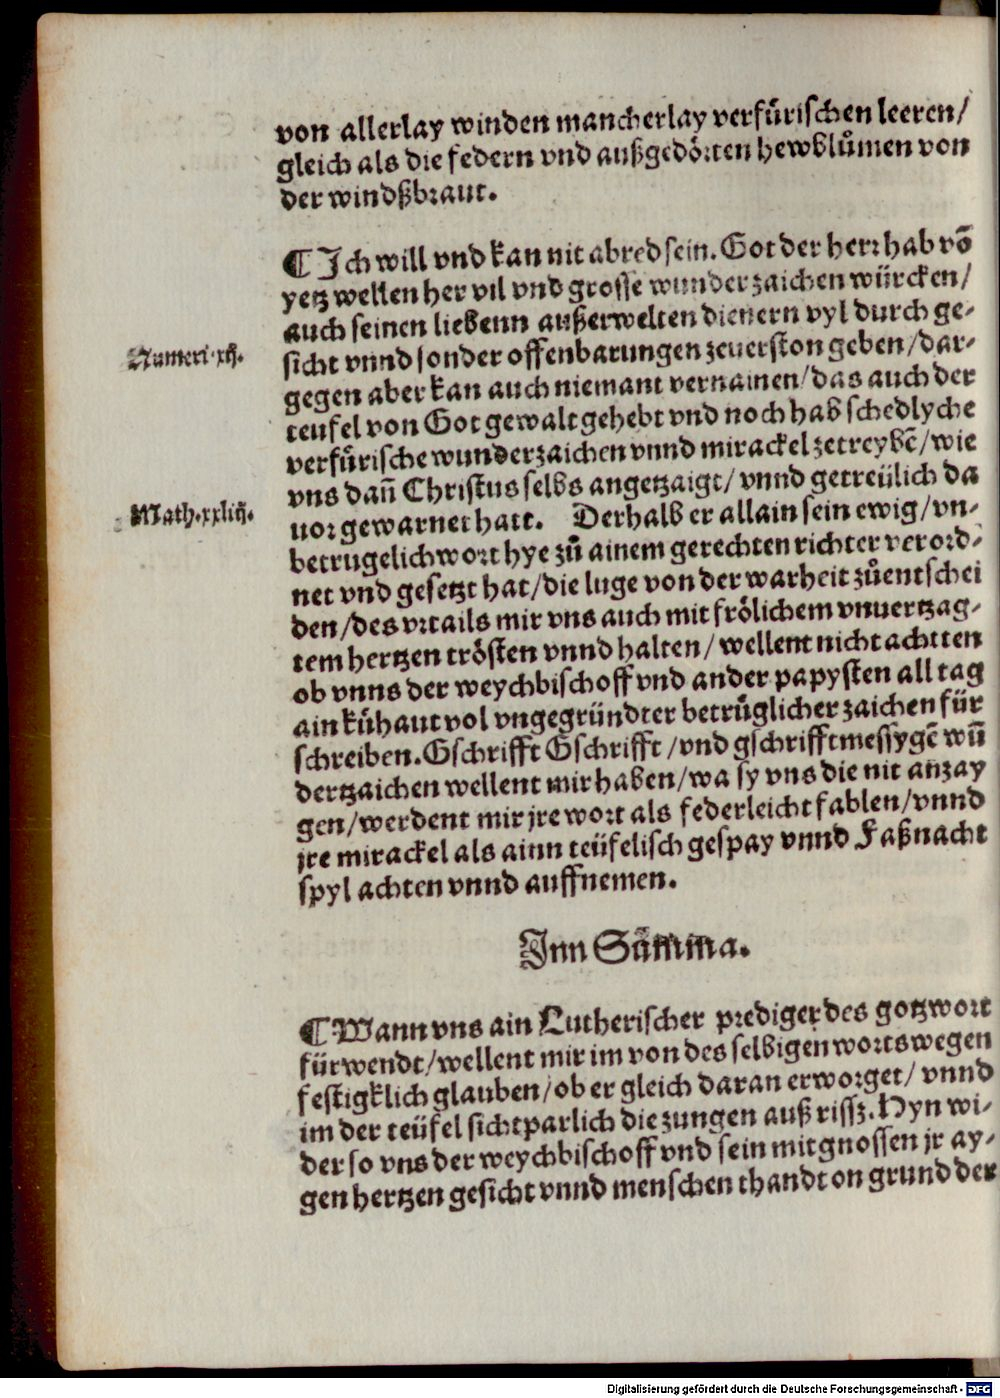 von allerlay winden mancherlay verfuͤrischen leeren/
gleich als die federn vnd außgedoͤrten hewbluͦmen von
der windßbraut.
¶ Ich will vnd kan nit abred sein. Got der herr hab võ
yetz welten her vil vnd grosse wunderzaichen würcken/
auch seinen liebenn außerwelten dienern vyl durch ge-
Numeri·xij.
sicht vnnd sonder offenbarungen zeuerston geben/dar-
gegen aber kan auch niemant vernainen/das auch der
teufel von Got gewalt gehebt vnd noch hab schedlyche
verfuͤrische wunderzaichen vnnd mirackel zetreybẽ/wie
vns dañ Christus selbs angetzaigt/vnnd getreülich da
Math·xxiiij.
uor gewarnet hatt. Derhalb er allain sein ewig/vn-
betrugelich wort hye zuͦ ainem gerechten richter verord-
net vnd gesetzt hat/die luge von der warheit zuͦentschei
den/des vrtails mir vns auch mit froͤlichem vnuertzag-
tem hertzen troͤsten vnnd halten/wellent nicht achtten
ob vnns der weychbischoff vnd ander papysten all tag
ain kuͤhaut vol vngegründter betruͤglicher zaichen für
schreiben. Gschrifft Gschrifft/vnd gschrifftmessygẽ wũ
dertzaichen wellent mir haben/wa sy vns die nit anzay
gen/werdent mir jre wort als federleicht fablen/vnnd
jre mirackel als ainn teüfelisch gespay vnnd Faßnacht
spyl achten vnnd auffnemen.
Inn Sũmma.
¶ Wann vns ain Lutherischer prediger des gotzwort
fürwendt/wellent mir im von des selbigen worts wegen
festigklich glauben/ob er gleich daran erworget/vnnd
im der teüfel sichtparlich die zungen auß rissz. Hyn wi-
der so vns der weychbischoff vnd sein mitgnossen jr ay-
gen hertzen gesicht vnnd menschen thandt on grund der
Digitalisierung gefördert durch die Deutsche Forschungsgemeinschaft - DFG